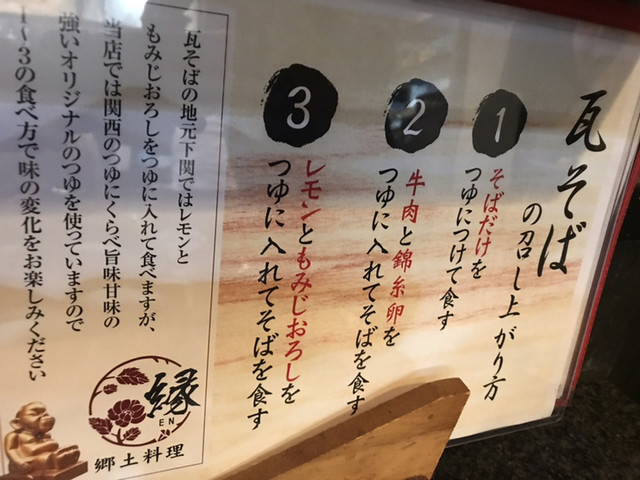 瓦そば
の召し上がり方
1
そばだけを
つゆにつけて食す
2
牛肉と錦糸卵を
つゆに入れてそばを食す
3
レモンともみじおろしを
つゆに入れてそばを食す
瓦そばの地元下関ではレモンと
もみじおろしをつゆに入れて食べますが、
当店では関西のつゆにくらべ旨味甘味の
強いオリジナルのつゆを使っていますので
1~3の食べ方で味の変化をお楽しみください
縁
EN
郷土料理